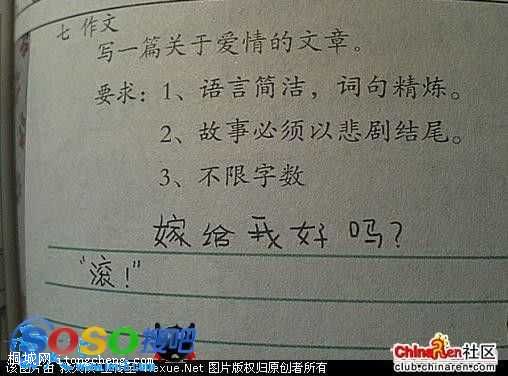 七 作文
写一篇关于爱情的文章。
要求：1、语言简洁，词句精炼。
2、故事必须以悲剧结尾。
3、不限字数
嫁给我好吗？
“滚！”
SOSO搜吧
桐城网 itongcheng.com
该图片由
exue.Net 图片版权归原创者所有
Chinaren社区
club.chinaren.com